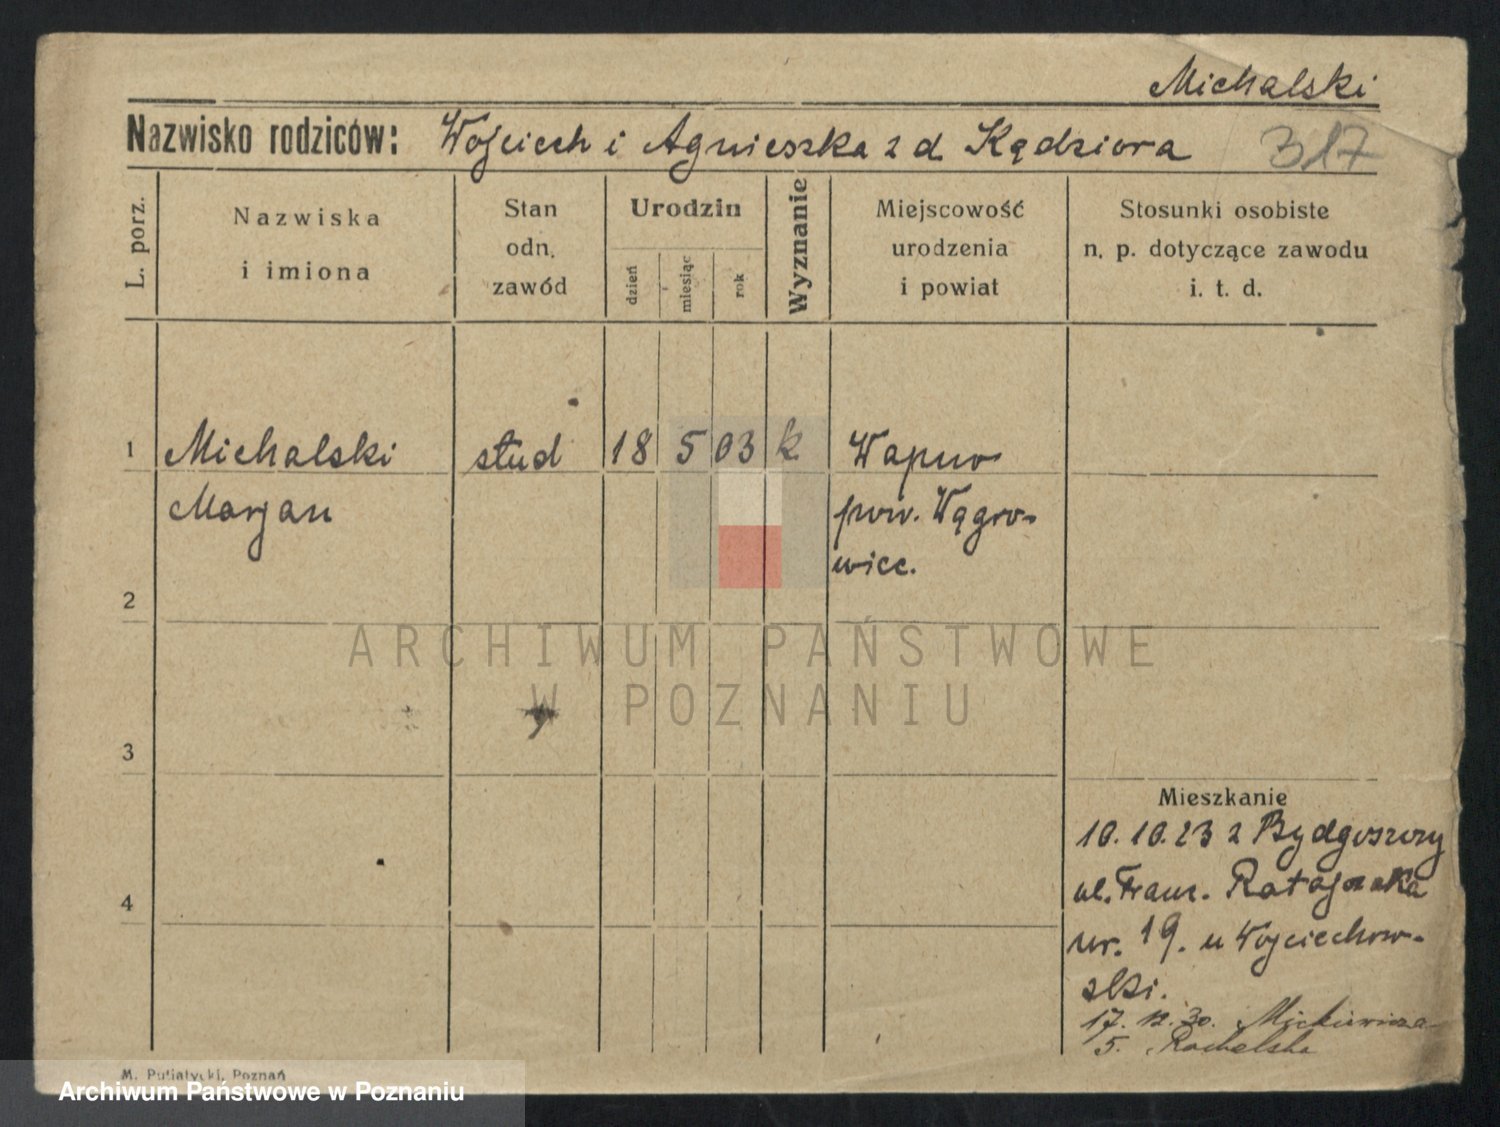 Michalski
Nazwisko rodziców: Wojciech i Agnieszka z d Kędziora 317
L. porz.
Nazwiska
i imiona
Stan
odn.
zawód
Urodzin
dzień
miesiąc
rok
Wyznanie
Miejscowość
urodzenia
i powiat
Stosunki osobiste
n. p. dotyczące zawodu
i. t. d.
1 Michalski stud 18 5 03 k Wapno
Marjan pow. Wągro-
wiec.
2
ARCHIWUM PAŃSTWOWE
W POZNANIU
3
Mieszkanie
10.10.23 z Bydgoszczy
4
ul. Franc. Ratajczaka
nr. 19. u Wojciechow-
ski.
17. 12. 30. Mickiewicza
5.
M. Putiatycki, Poznań
Archiwum Państwowe w Poznaniu